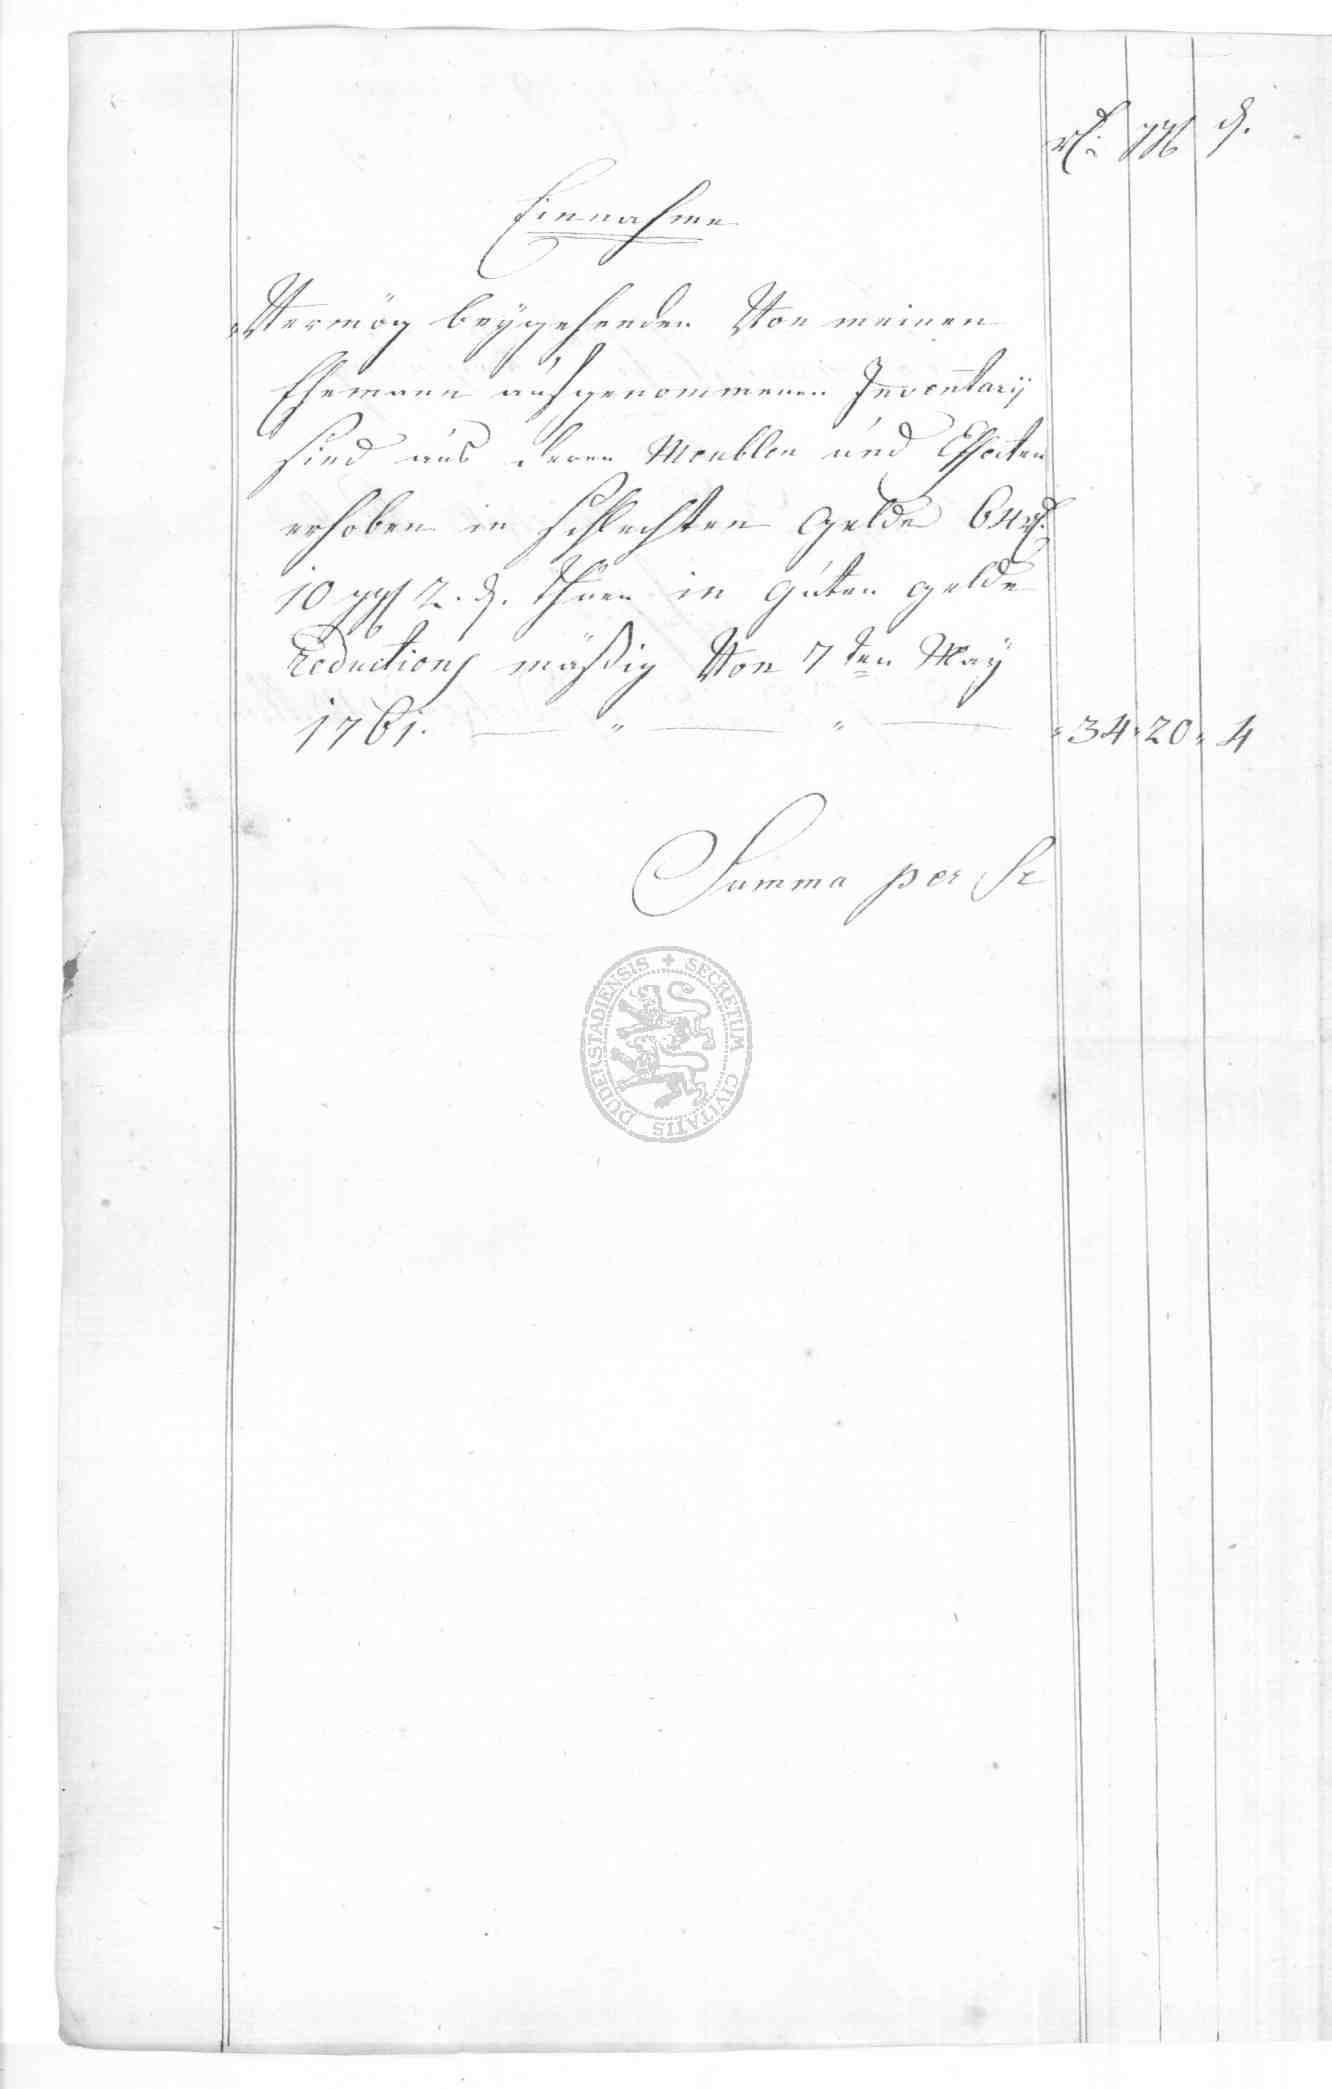 rt: ggl d.
Einnahme
Vermög beÿgehenden Von meinen
Ehemann aufgenommenen Inventarij
sind aus deren Meublen und Effecten
erhoben in schlechten gelde 64 rt.
10 ggl 2. d. thuen in guten gelde
Reductions mäßig Von 7ten Maÿ
1761. — " — " — 34 20 4
Summa per se
DUDERSTADIENSIS + SECRETUM CIVITATIS